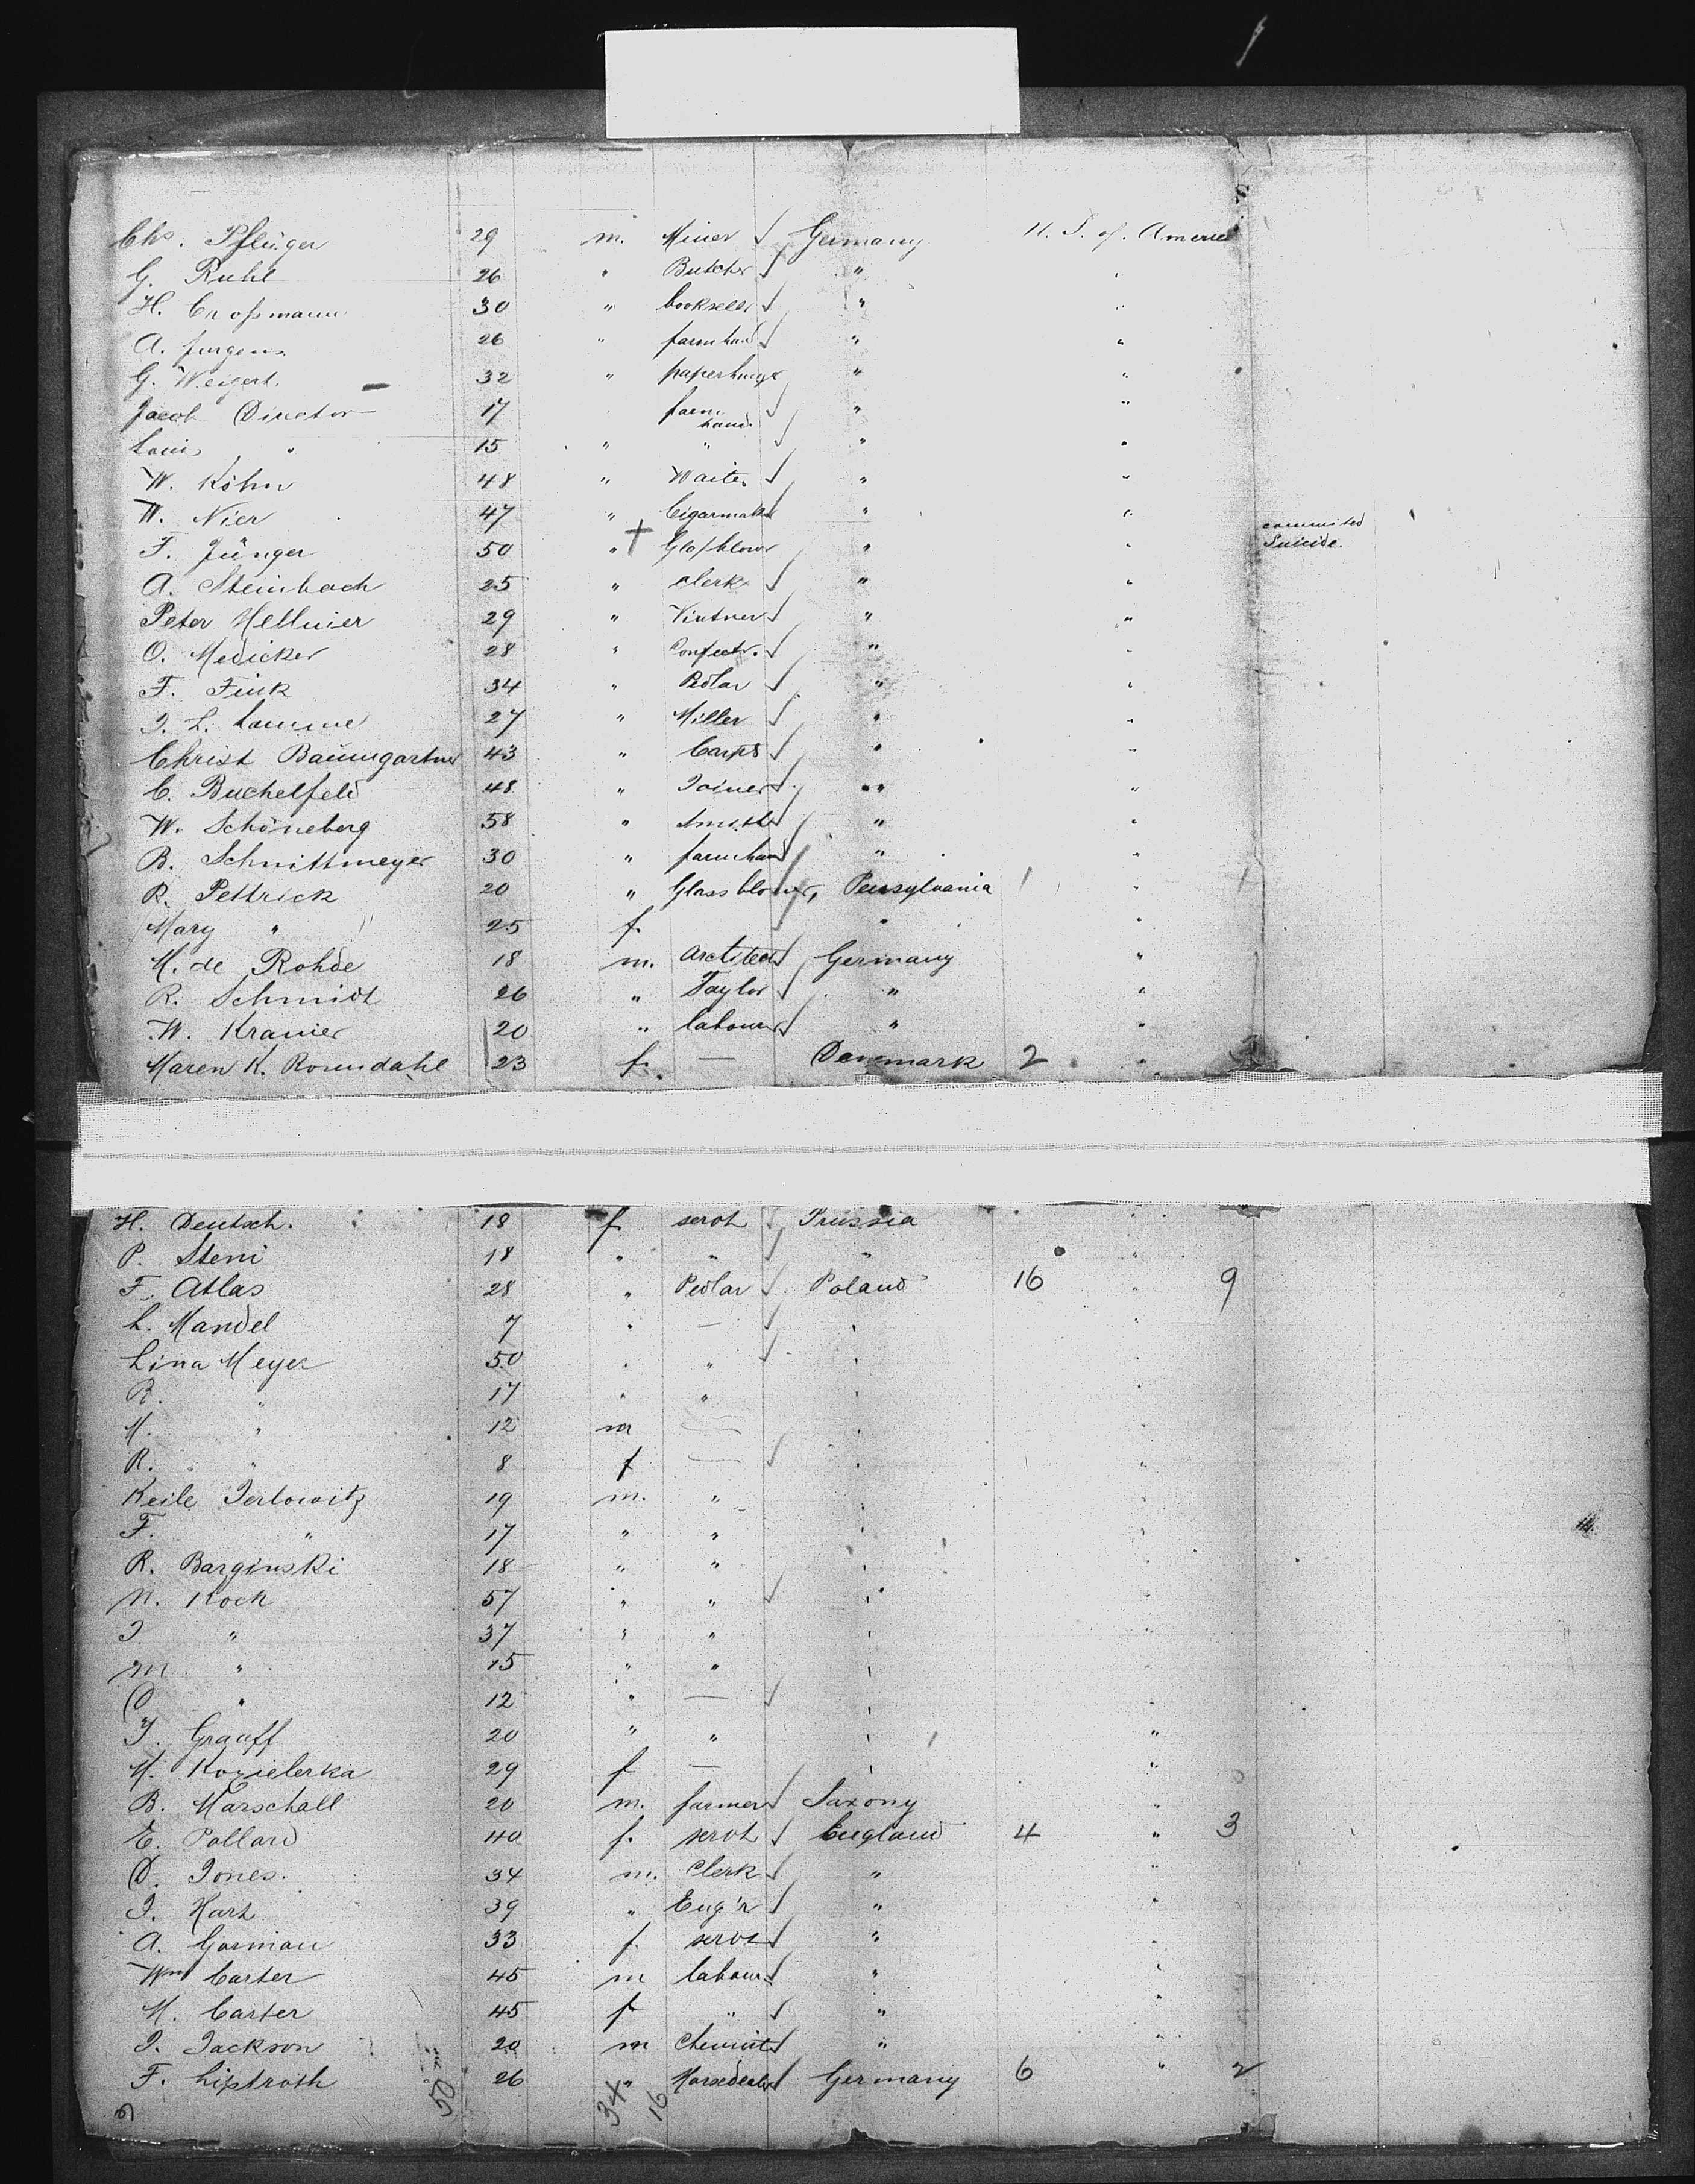 Chs. Pflüger 29 m. Miner Germany U. S. of. America
G. Ruhl 26 " Butcher " "
H. Croßmann 30 " bookseller " "
A. Jurgens 26 " farmhand " "
G. Weigert. 32 " paperhangr " "
Jacob Director 17 farm hand " "
Louis " 15 " " " "
W. Köhn 48 " Waiter " "
W. Nier 47 " Cigarmaker " "
F. Jünger 50 " Glaßblowr " " commited Suicide.
A. Steinbach 25 " clerk " "
Peter Mellinier 29 " Vintner " "
O. Medicker 28 " Confectr. " "
F. Fink 34 " Pedlar " "
J. L. Lamme 27 " Miller " "
Christ Baumgartner 43 " Carptr " "
C. Buchelfeld 48 " Joiner " "
W. Schöneberg 58 " Smith " "
B. Schnittmeyer 30 " farmhand " "
R. Pettrick 20 " Glass blower, Pensylvania 1 "
Mary " 25 f. " "
M. de Rohde 18 m. Arctitect Germany "
R. Schmidt 26 " Taylor " "
W. Kranier 20 " labourer " "
Maren K. Rosendahl 23 f. — Danemark 2 "
H. Deutsch. 18 f servt Prussia "
P. Steni 18 " " " "
F. Atlas 28 " Pedlar Poland 16 " 9
L. Mandel 7 " — " "
Lina Meyer 50 " " " "
R. " 17 " " " "
M. " 12 m — " "
R. " 8 f — " "
Keile Jerlowitz 19 m. " " "
F. " 17 " " " "
R. Barginski 18 " " " "
N. Koch 57 " " " "
J " 37 " " " "
M " 15 " " "
O " 12 " — " "
J. Graaff 20 " " " "
M. Kozielerka 29 f — " "
B. Marschall 20 m. farmer Saxony "
E. Pollard 40 f. servt England 4 " 3
D. Jones. 34 m. Clerk " "
J. Hart 39 " Eng'r " "
A. Gorman 33 f. servt " "
Wm Carter 45 m labour " "
M. Carter 45 f " " "
J. Jackson 20 m Chemist " "
F. Liptroth 26 " Horsedealer Germany 6 " 2
50 34 16